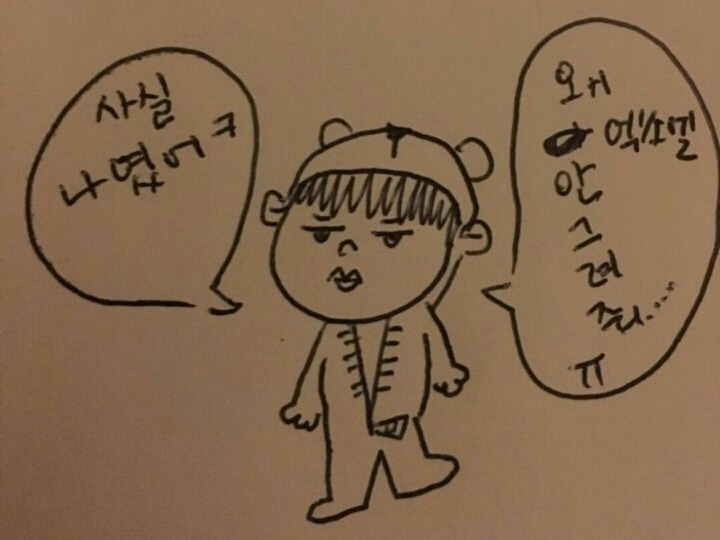 사실
나였어 ㅋ
왜
엑소엘
안
그
려
줘....
ㅠ